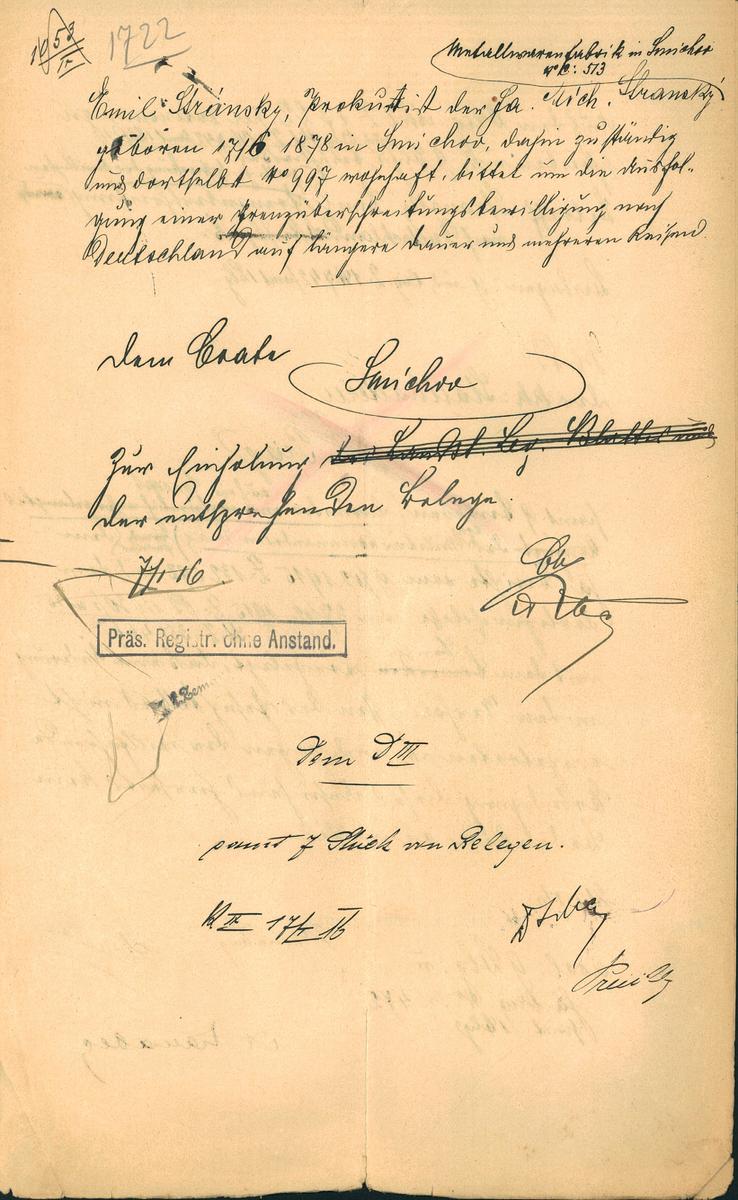 1722
Metallwarenfabrik in Smichov
No C: 513
Emil Stránský, Prokurist der Fa. Rich. Stranský
geboren 17/6 1878 in Smichov, dahin zuständig
und dortselbst No 997 wohnhaft, bittet um die Ausfol-
gung einer Grenzüberschreitungsbewilligung nach
Deutschland auf längere Dauer und mehreren Reisen.
Dem Coate
Smichov
zur Einholung
der entsprechenden Belege.
7/I 16.
Präs. Registr. ohne Anstand.
Dem D III
samt 7 Stück von Belegen.
17/I 16